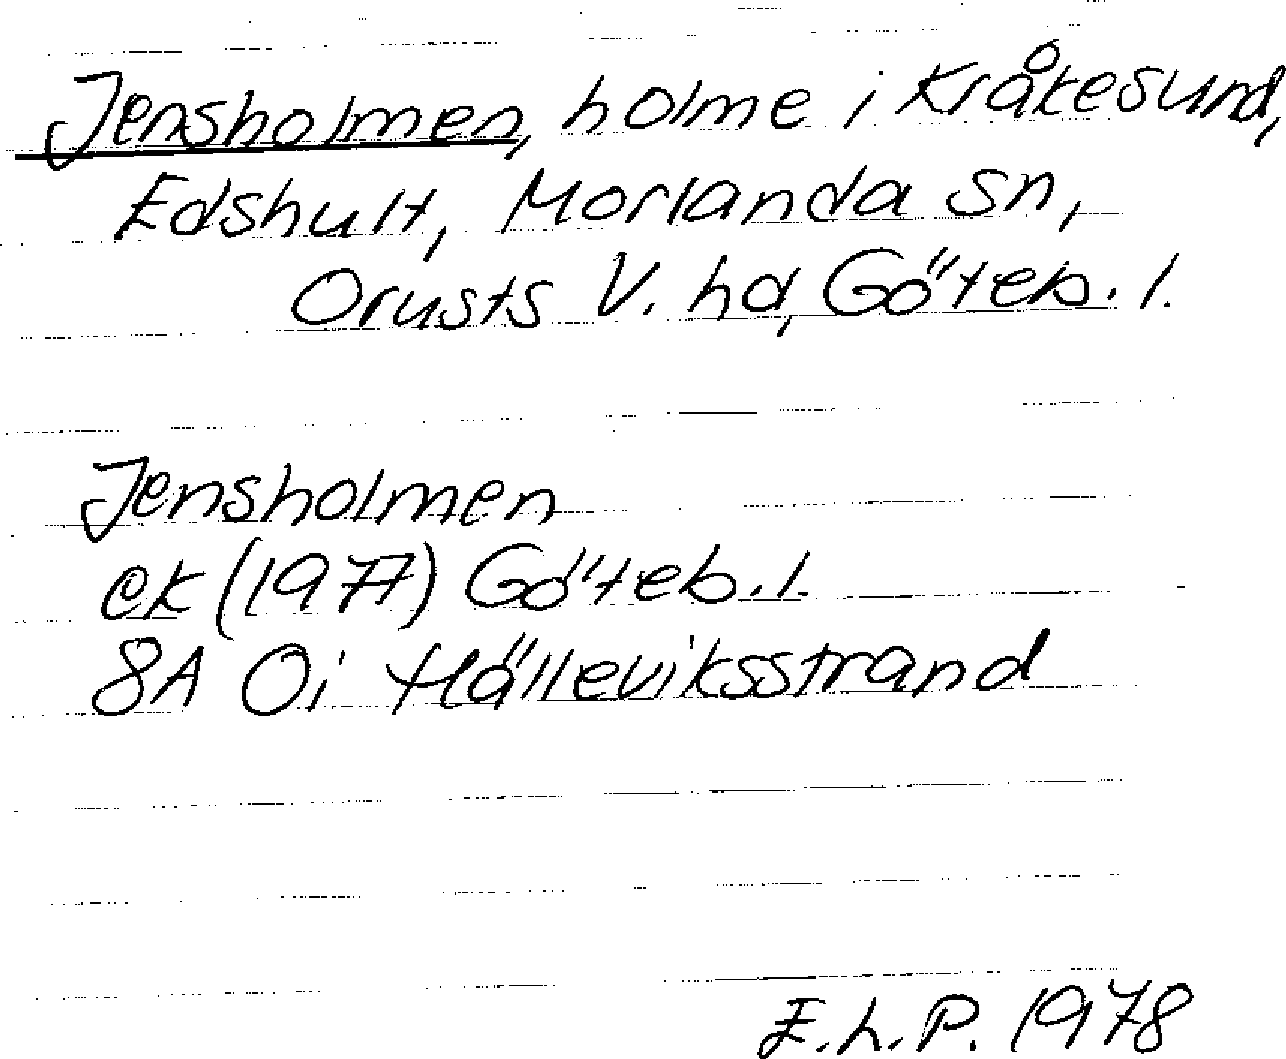 Jensholmen, holme i Kråkesund,
Edshult, Morlanda sn,
Orusts V. hd, Göteb. l.
Jensholmen
ek (1977) Göteb. l.
8A 0i Hälleviksstrand
E.L.P. 1978